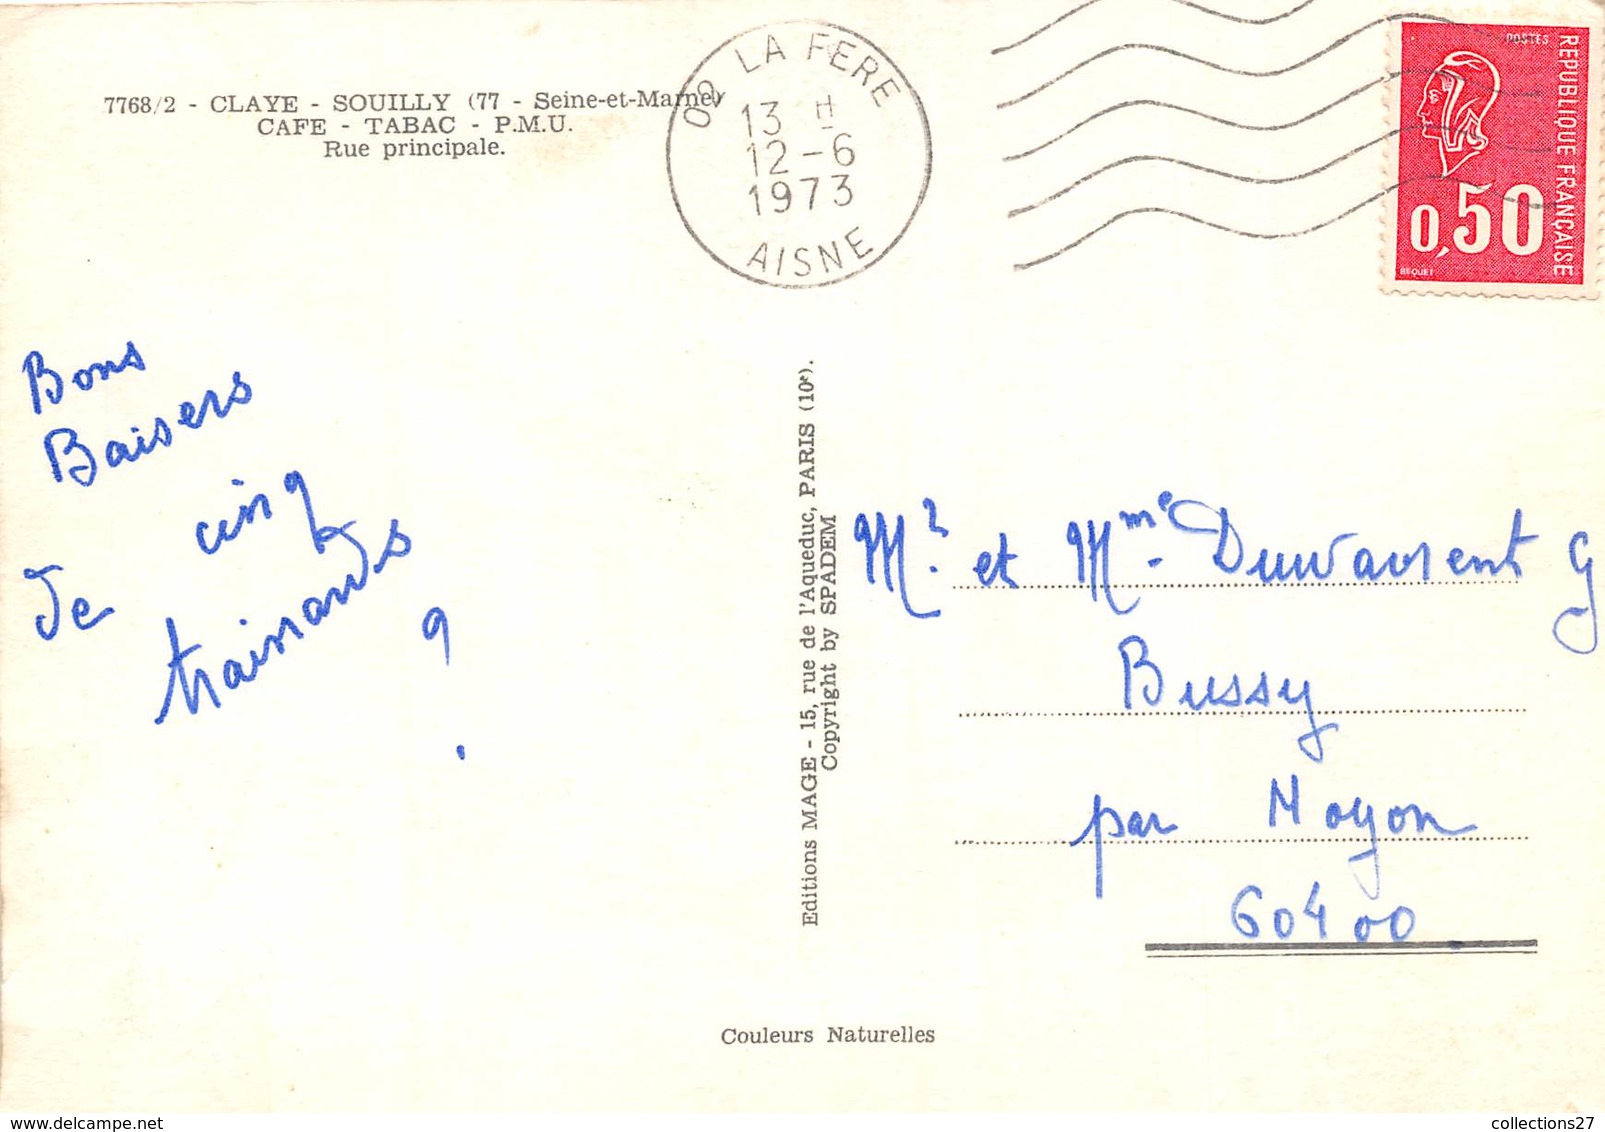 7768/2 - CLAYE - SOUILLY (77 - Seine-et-Marne)
CAFE - TABAC - P.M.U.
Rue principale.
02 LA FERE
13 H
12-6
1973
AISNE
POSTES
REPUBLIQUE FRANÇAISE
0,50
BEQUET
Bons
Baisers
de cinq
trainards
?
Editions MAGE - 15, rue de l'Aqueduc, PARIS (10e).
Copyright by SPADEM
Mr. et Mme. G
Bussy
par Noyon
60400.
Couleurs Naturelles
collections27